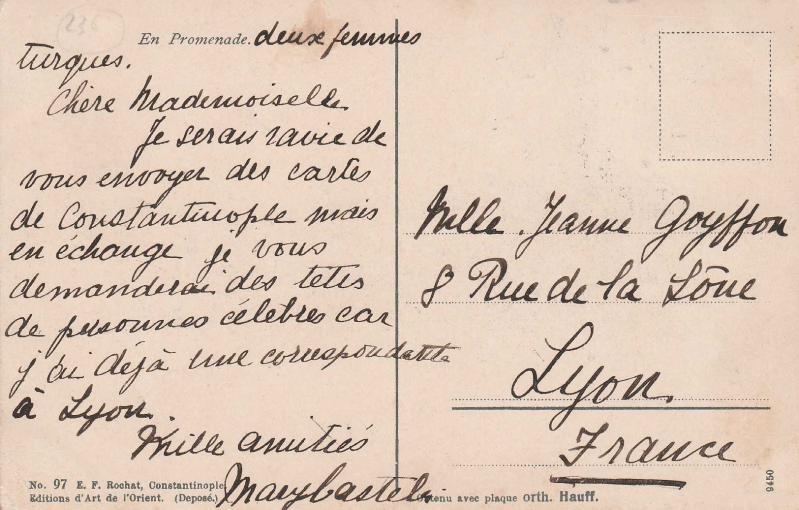 236
En Promenade. deux femmes
turques.
Chère Mademoiselle
Je serais ravie de
vous envoyer des cartes
de Constantinople mais
en échange je vous
demanderai des têtes
de personnes célèbres car
j'ai déjà une correspondante
à Lyon.
Mille amitiés
Mary
No. 97 E. F. Rochat, Constantinople
Editions d'Art de l'Orient. (Deposé.)
avec plaque orth. Hauff.
Mlle. Jeanne Goyffon
8 Rue de la Lône
Lyon.
France
9450